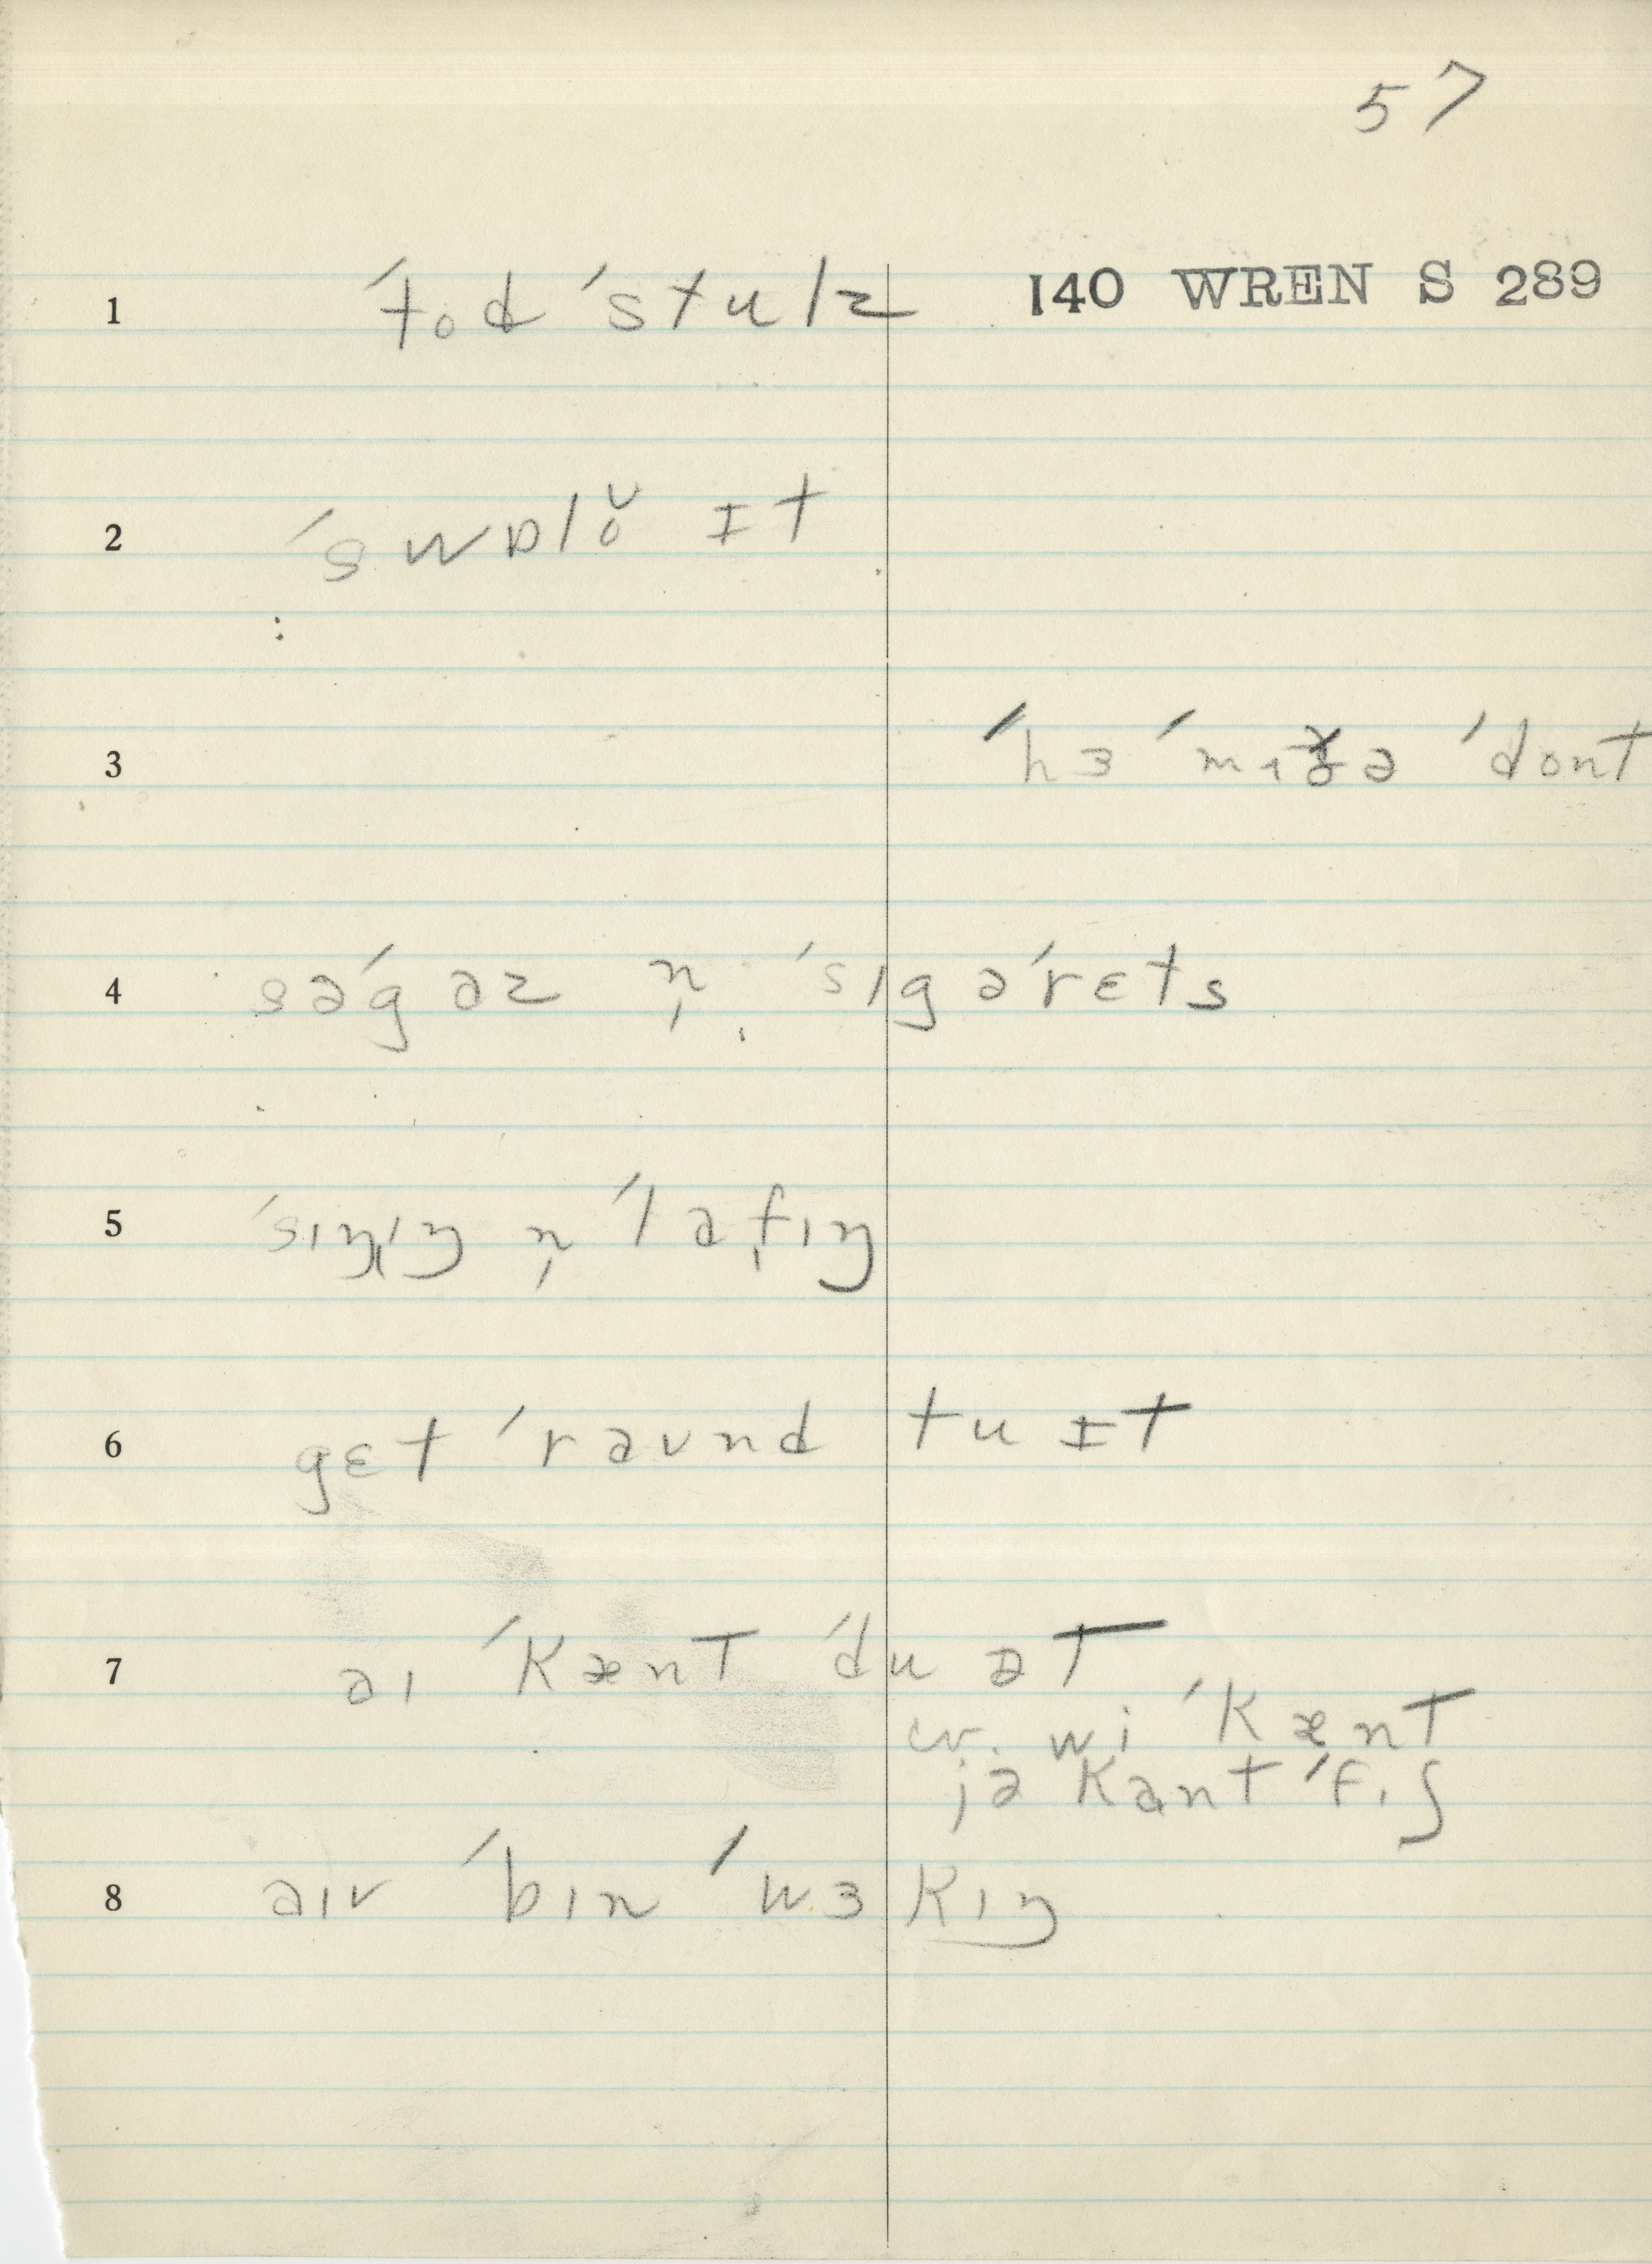 57
1 ˈtod ˈstulz 140 WREN S 289
2 ˈswɒlŏ ɪt
3 ˈhɜ ˈmɪzə ˈdont
4 səˈgaz n̩ ˈsɪgəˈrɛts
5 ˈsɪŋɪŋ n̩ ˈlafɪŋ
6 gɛt ˈraʊnd tu ɪt
7 aɪ ˈkænt ˈdu ət
cv. wi ˈkænt
jə kant ˈfɪʃ
8 aɪv ˈbɪn ˈwɜkɪŋ